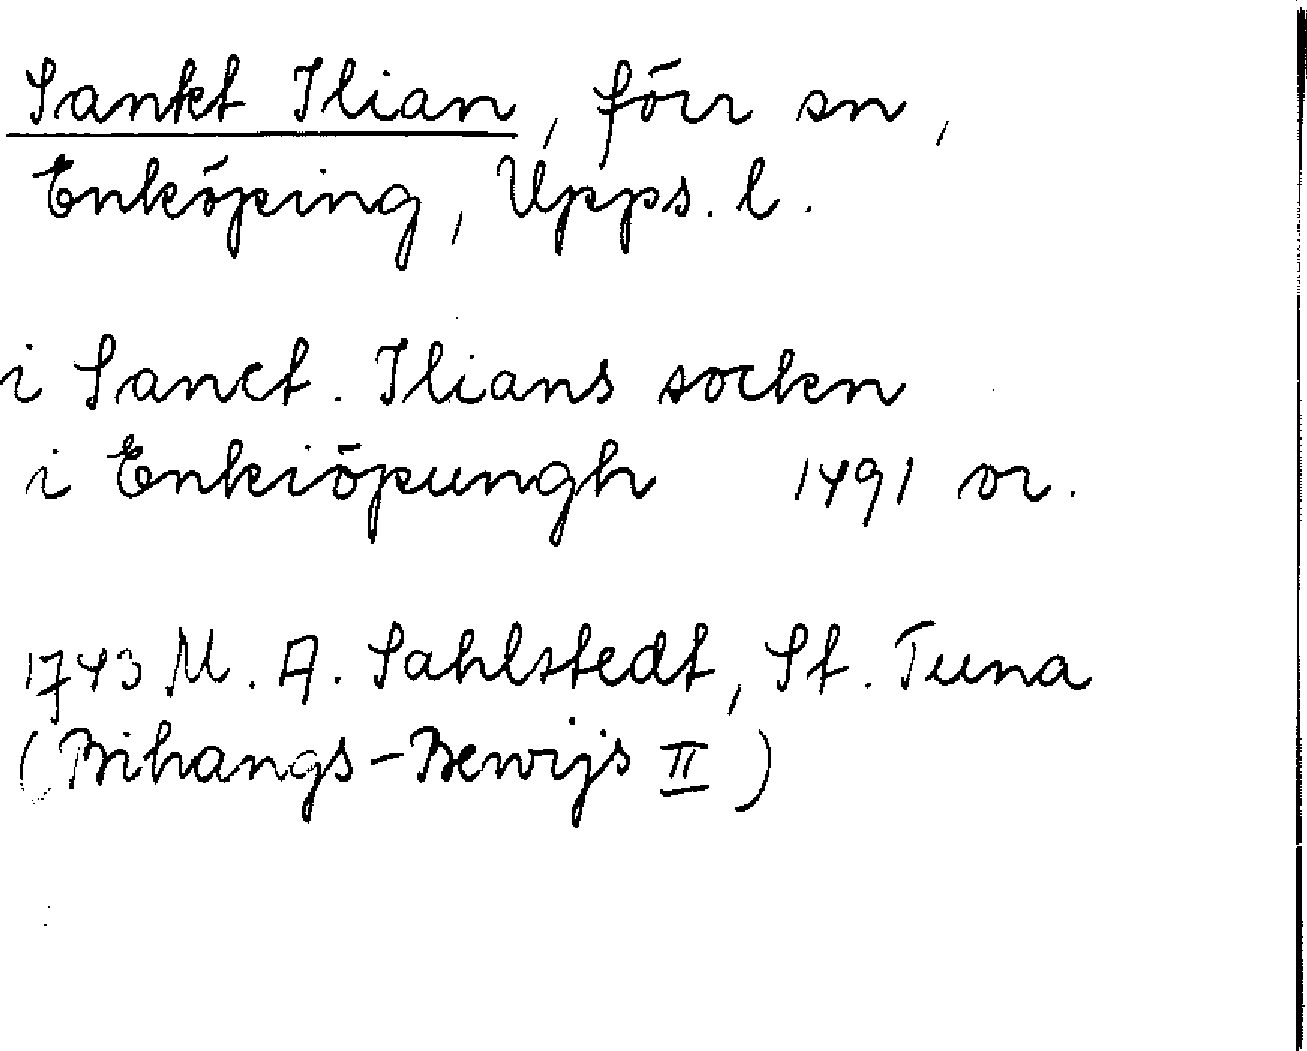 Sankt Ilian, förr sn,
Enköping, Upps. l.
i Sanct. Ilians sockn
i Enkiöpungh 1491 or.
1743 M. A. Sahlstedt, St. Tuna
(Bihangs-Bewijs II)